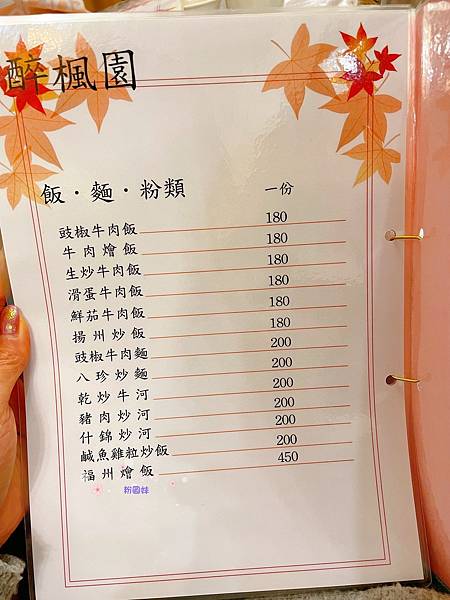 醉楓園
飯・麵・粉類 一份
豉椒牛肉飯 180
牛肉燴飯 180
生炒牛肉飯 180
滑蛋牛肉飯 180
鮮茄牛肉飯 180
揚州炒飯 180
豉椒牛肉麵 200
八珍炒麵 200
乾炒牛河 200
豬肉炒河 200
什錦炒河 200
鹹魚雞粒炒飯 200
福州燴飯 450
粉圓妹